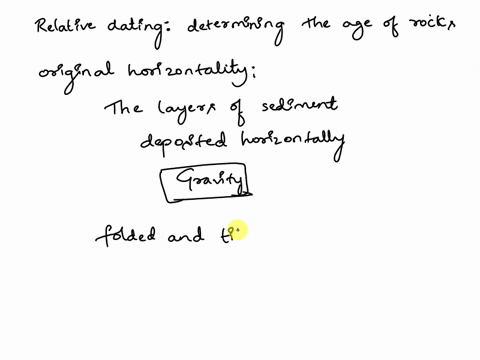 Relative dating: determining the age of rocks
original horizontality:
The layers of sediment
deposited horizontally
Gravity
folded and ti